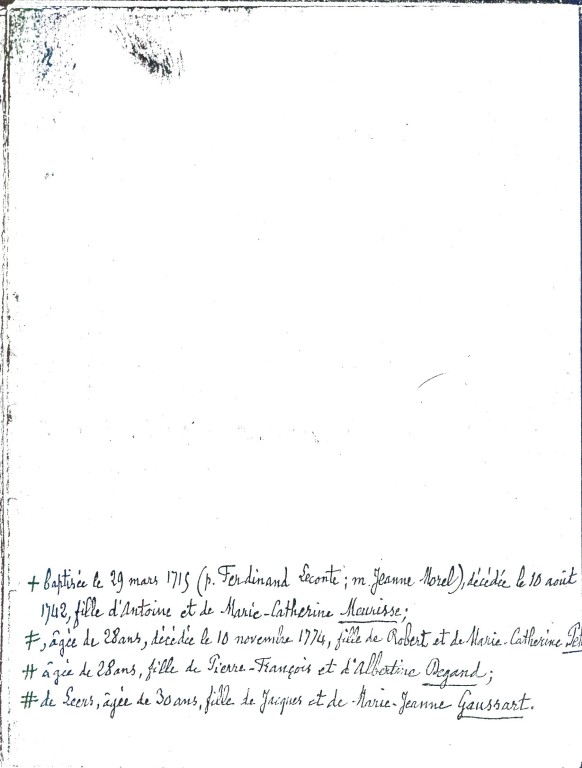 + baptisée le 29 mars 1715 (p. Ferdinand Leconte ; m. Jeanne Morel), décédée le 10 août
1742, fille d'Antoine et de Marie-Catherine Meurisse ;
ǂ, âgée de 28 ans, décédée le 10 novembre 1774, fille de Robert et de Marie-Catherine
⧺ âgée de 28 ans, fille de Pierre-François et d'Albertine Degand ;
# de Leers, âgée de 30 ans, fille de Jacques et de Marie-Jeanne Gaussart.